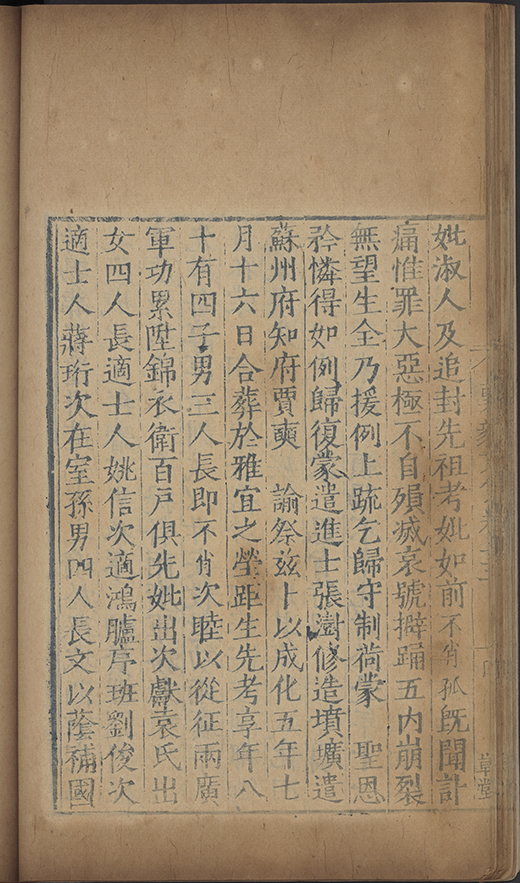 妣淑人及追封先祖考妣如前不肖孤旣聞訃
痛惟罪大惡極不自殞滅哀號擗踊五内崩裂
無望生全乃援例上疏乞歸守制荷蒙　聖恩
矜憐得如例歸復蒙遣進士張澍修造墳壙遣
蘇州府知府賈奭　諭祭兹卜以成化五年七
月十六日合葬於雅宜之塋距生先考享年八
十有四子男三人長即不肖次睦以從征兩廣
軍功累陞錦衣衛百戸俱先妣出次獻袁氏出
女四人長適士人姚信次適鴻臚序班劉俊次
適士人蔣珩次在室孫男四人長文以蔭補國
草堂